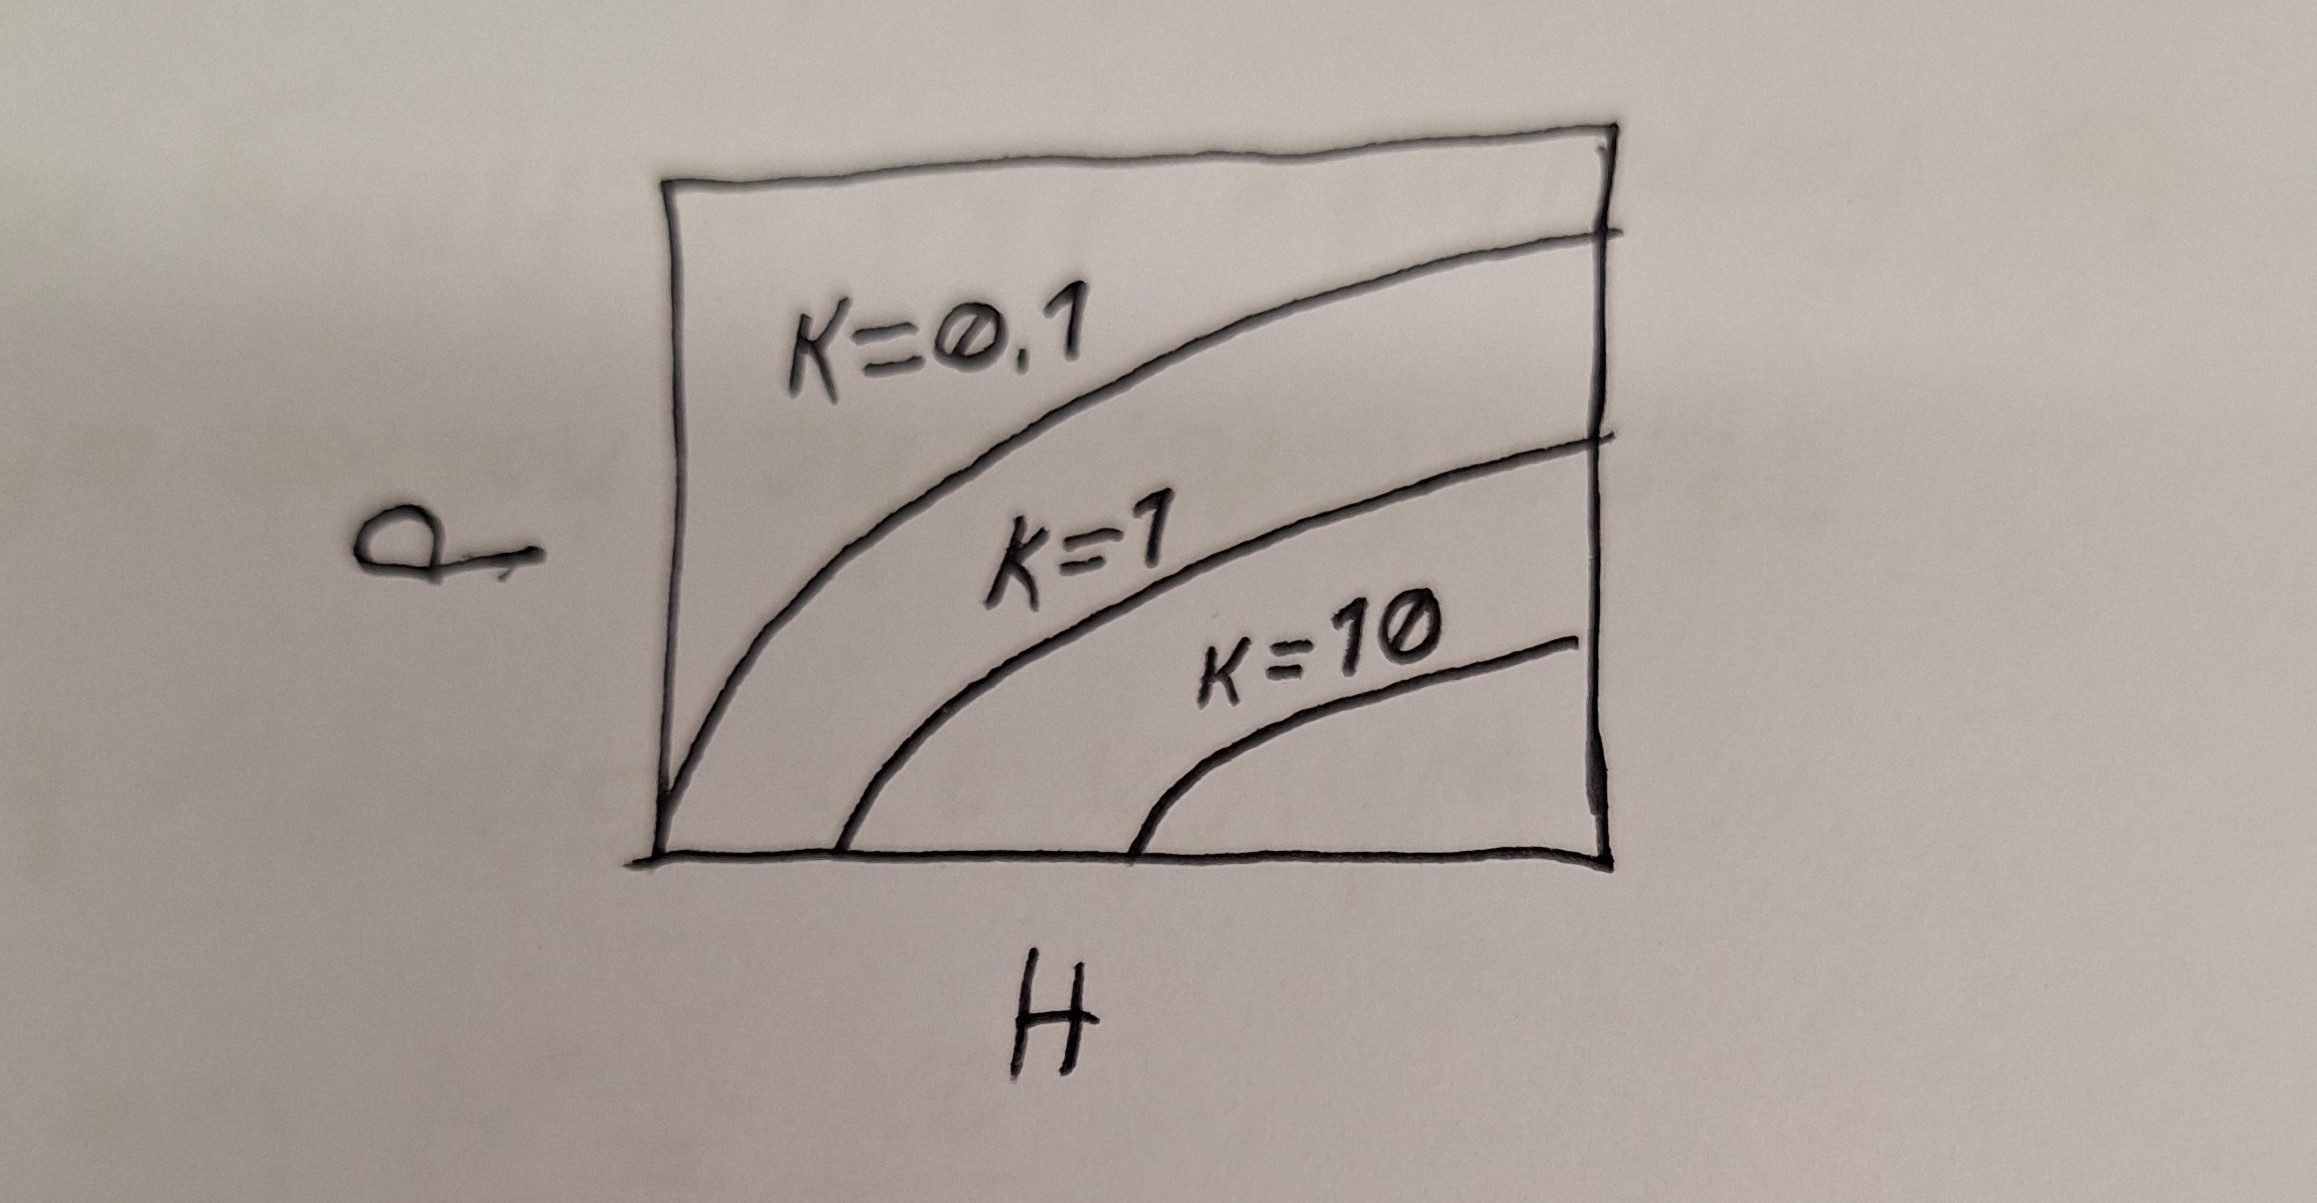 K=0.1
K=1
K=10
P
H